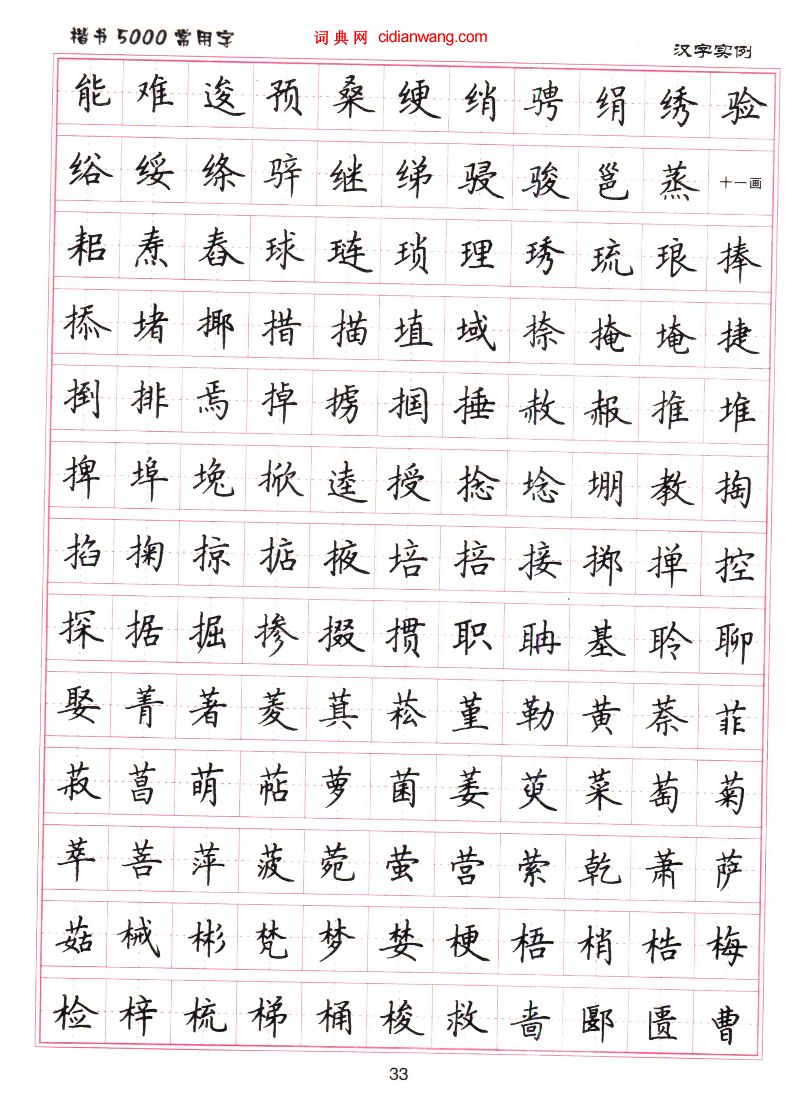 楷书5000常用字
词典网 cidianwang.com
汉字实例
能难逡预桑绠绡骋绢绣验
绤绥绦骍继绨骎骏邕烝十一画
耜焘舂球琏琐理琇琉琅捧
掭堵揶措描埴域捺掩埯捷
捯排焉掉掳掴捶赦赧推堆
捭埠埯掀逵授捻埝堋教掏
掐掬掠掂掖培掊接掷掸控
探据掘掺掇掼职聃基聆聊
娶菁著菱萁菘堇勒黄萘菲
菽菖萌萜萝菌萎萸菜萄菊
萃菩萍菠菀萤营萦乾萧萨
菇械彬梵梦婪梗梧梢梏梅
检梓梳梯桶梭救啬郾匮曹
33